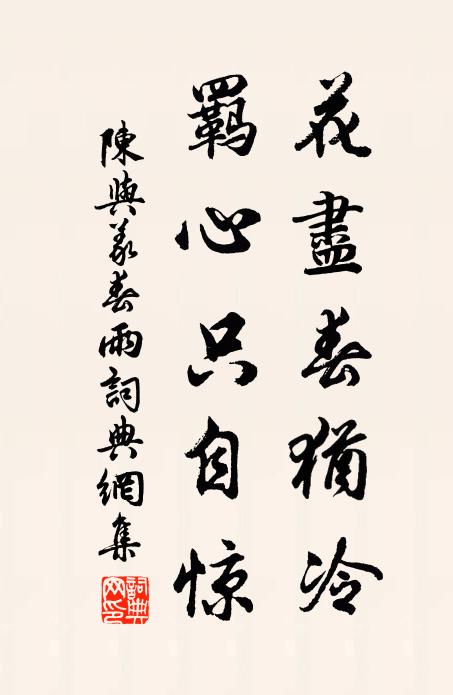 花盡春猶冷
羁心只自惊
陳與義春雨詞典網集
詞典网印